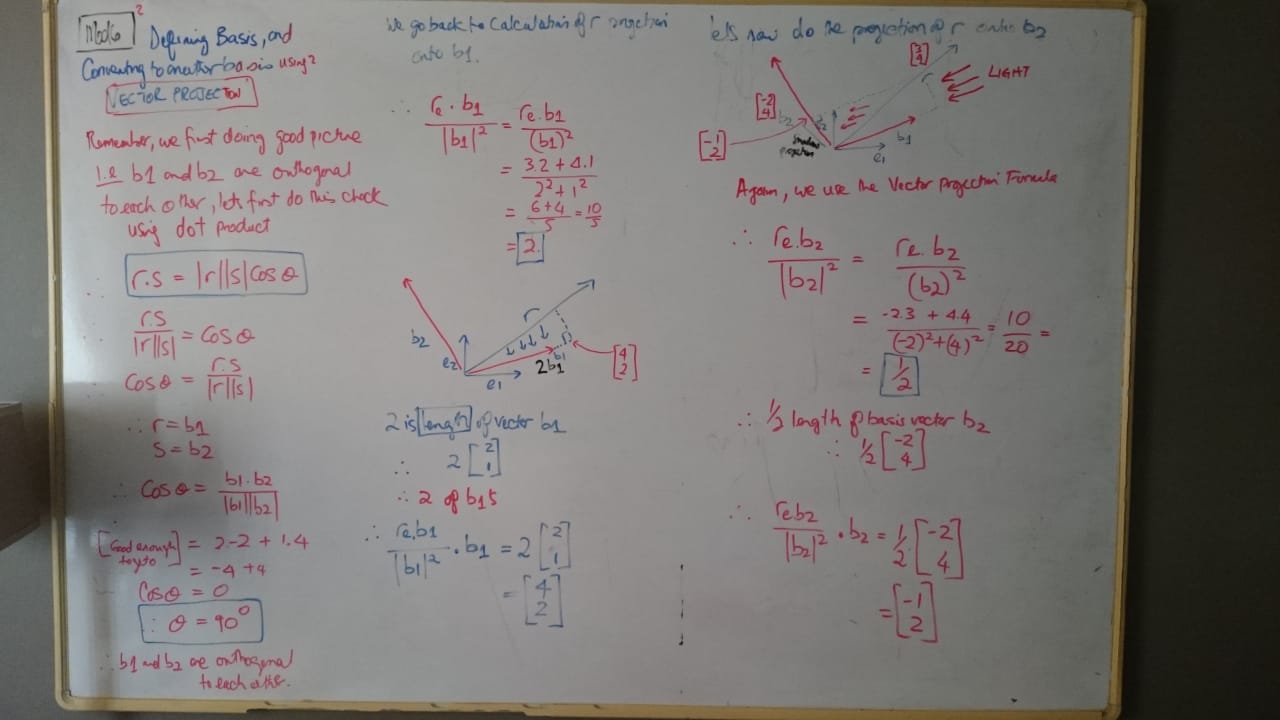 Mod6 2
Defining Basis, and
Converting to another basis using 2
VECTOR PROJECTON
Remember, we first doing good picture
i.e b1 and b2 are orthogonal
to each other, lets first do this check
using dot product
∴ r.s = |r||s|cos θ
r.s / |r||s| = cos θ
cos θ = r.s / |r||s|
∴ r = b1
s = b2
∴ cos θ = b1.b2 / |b1||b2|
[Good enough to go to] = 2.-2 + 1.4
= -4 + 4
cos θ = 0
∴ θ = 90°
∴ b1 and b2 are orthogonal
to each other.
We go back to calculation of r projection
onto b1.
∴ re . b1 / |b1|² = re.b1 / (b1)²
= 3.2 + 4.1 / 2² + 1²
= 6+4 / 5 = 10 / 5
= 2.
b2
e2
e1
r
2b1
b1
[4 2]
2 is length of vector b1
∴ 2 [2 1]
∴ 2 of b1s
∴ re.b1 / |b1|² . b1 = 2 [2 1]
= [4 2]
lets now do the projection of r onto b2
[3 4]
r
LIGHT
[-2 4]
b2
e2
[-1 2]
projection
b1
e1
Again, we use the Vector projection Formula
∴ re.b2 / |b2|² = re.b2 / (b2)²
= -2.3 + 4.4 / (-2)²+(4)² = 10 / 20 =
= 1/2
∴ 1/2 length of basis vector b2
∴ 1/2 [-2 4]
∴ re.b2 / |b2|² . b2 = 1/2 [-2 4]
= [-1 2]